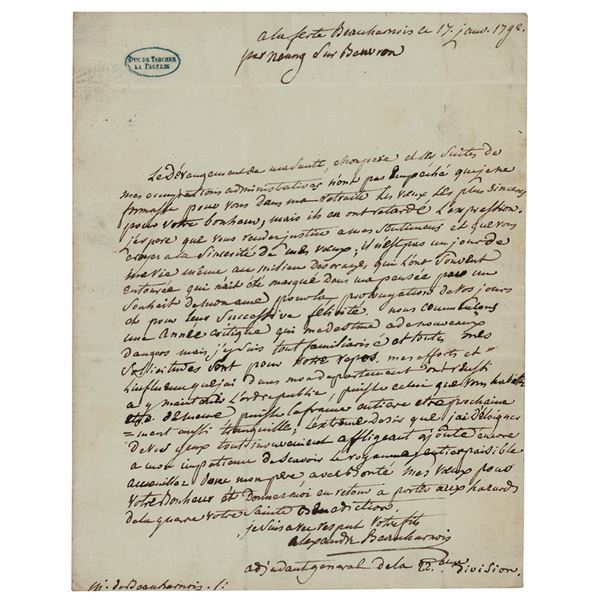 a la ferté Beauharnois ce 17. janv. 1792.
par neung sur Beuvron
DUC DE TASCHER
LA PAGERIE
Le Dérangement de ma santé, mon père et les suites de
mes occupations administratives n'ont pas empêché que je ne
formasse pour vous dans ma retraite les vœux les plus sinceres
pour votre bonheur, mais ils en ont retardé l'expression.
j'espere que vous rendez justice a mes sentimens et que vous
croyez a la Sincerité de mes vœux; il n'est pas un jour de
ma vie même au milieu des orages qui l'ont souvent
entourée qui n'ait été marqué dans ma pensée par un
Souhait de mon ame pour la prolongation de vos jours
et pour leur Successive félicité. nous commençons
une année critique qui me destine a de nouveaux
dangers mais j'y suis tout familiarisé et toutes mes
Sollicitudes sont pour votre repos. mes efforts et
l'influence que j'ai dans mon departement ont réussi
a y maintenir l'ordre public, puisse celui que vous habitez
de même puisse la france entiere etre prochaine
=ment aussi tranquille; l'extrême desir que j'ai d'éloigner
de vos yeux tout mouvement affligeant ajoute encore
a mon impatience de scavoir le royaume entier paisible
accueillez donc mon père, avec bonté mes vœux pour
votre Bonheur et donnez moi en retour a porter aux hazards
de la guerre votre Sainte Bénédiction.
je suis avec respect votre fils
alexandre Beauharnois
adjudant general de la 22.eme division.
M. de Beauharnois.